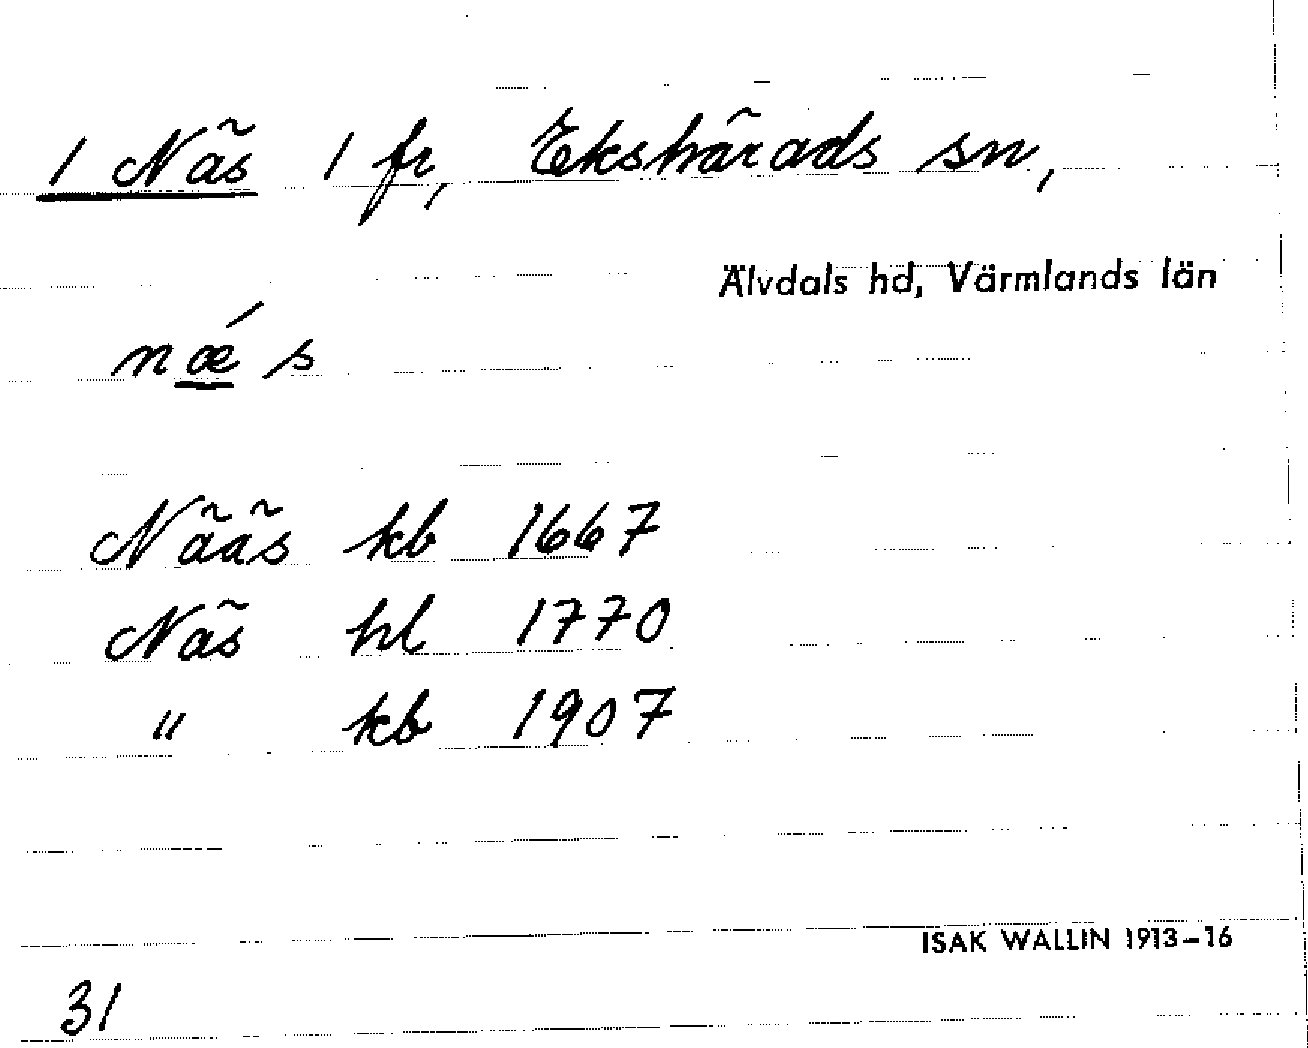 1 Näs 1 fr, Ekshärads sn,
Älvdals hd, Värmlands län
nǽs
Nääs kb 1667
Näs hl 1770
" kb 1907
ISAK WALLIN 1913-16
31